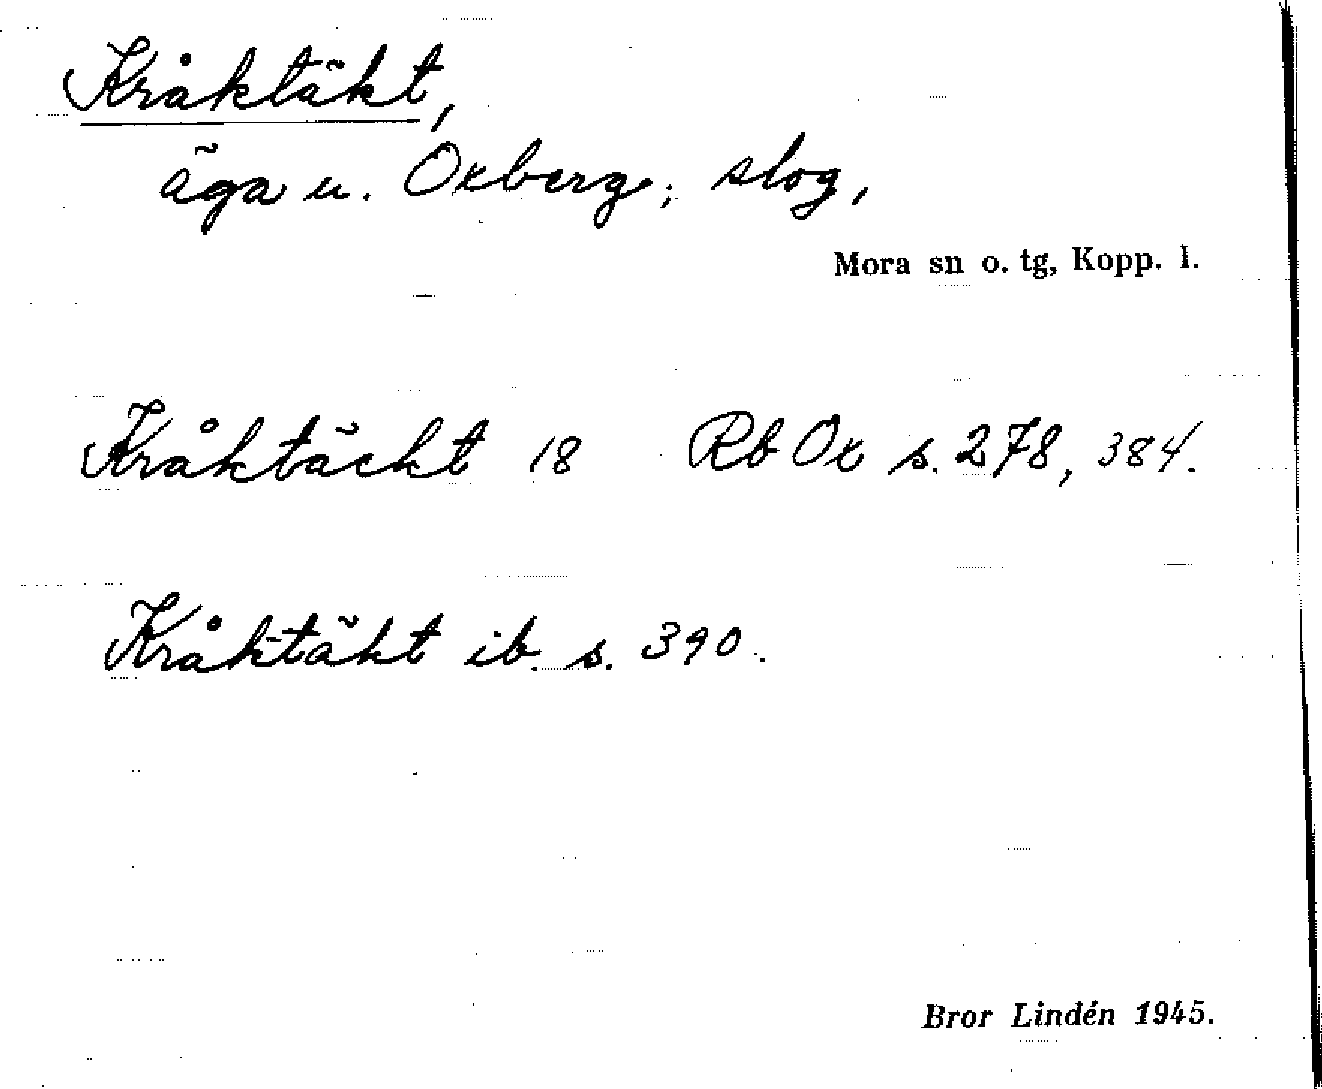 Kråktäkt,
äga u. Oxberg; slog,
Mora sn o. tg, Kopp. l.
Kråktäckt 18 Rb Ox s. 278, 384.
Kråktäkt ib. s. 390.
Bror Lindén 1945.